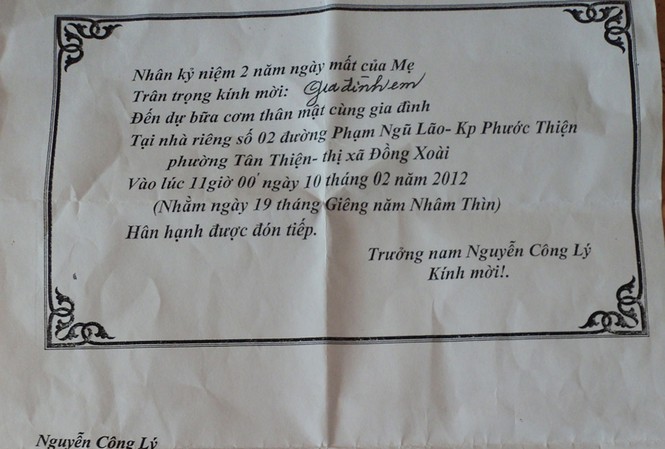 Nhân kỷ niệm 2 năm ngày mất của Mẹ
Trân trọng kính mời: gia đình em
Đến dự bữa cơm thân mật cùng gia đình
Tại nhà riêng số 02 đường Phạm Ngũ Lão- Kp Phước Thiện
phường Tân Thiện- thị xã Đồng Xoài
Vào lúc 11giờ 00' ngày 10 tháng 02 năm 2012
(Nhằm ngày 19 tháng Giêng năm Nhâm Thìn)
Hân hạnh được đón tiếp.
Trưởng nam Nguyễn Công Lý
Kính mời!.
Nguyễn Công Lý